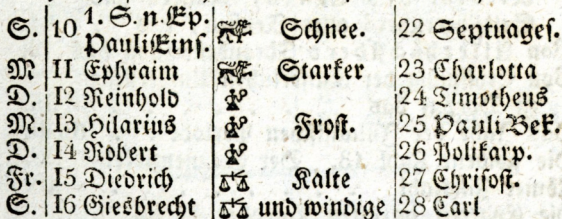 S. 10 1. S. n. Ep. Pauli Eins. Schnee. 22 Septuages.
M 11 Ephraim Starker 23 Charlotta
D. 12 Reinhold 24 Timotheus
M. 13 Hilarius Frost. 25 Pauli Bek.
D. 14 Robert 26 Polikarp.
Fr. 15 Diedrich Kalte 27 Chrisost.
S. 16 Giesbrecht und windige 28 Carl